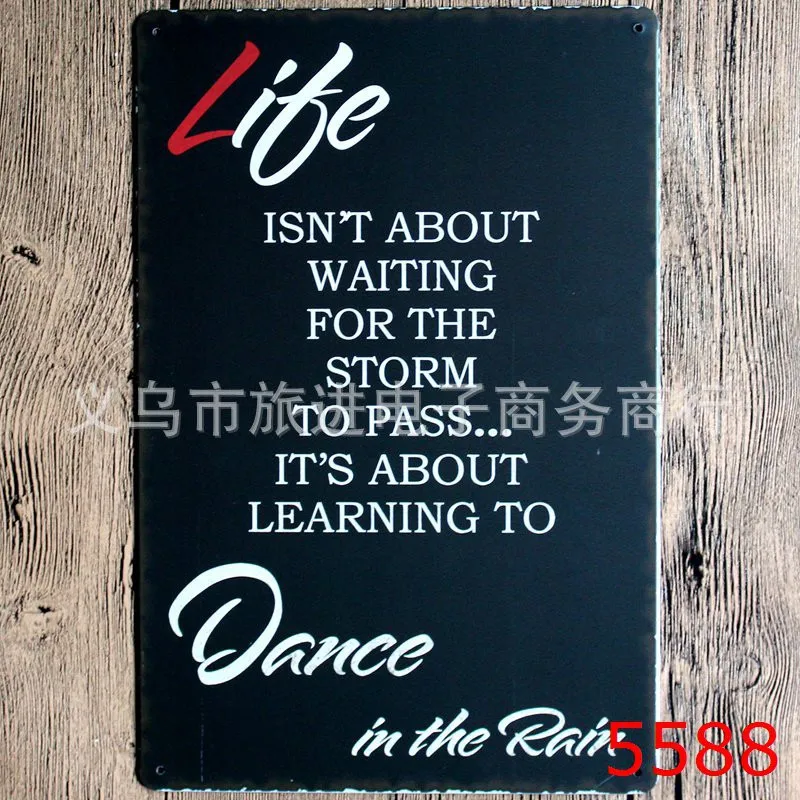 Life
ISN'T ABOUT
WAITING
FOR THE
STORM
义乌市旅进电子商务商行
TO PASS...
IT'S ABOUT
LEARNING TO
Dance
in the Rain
5588